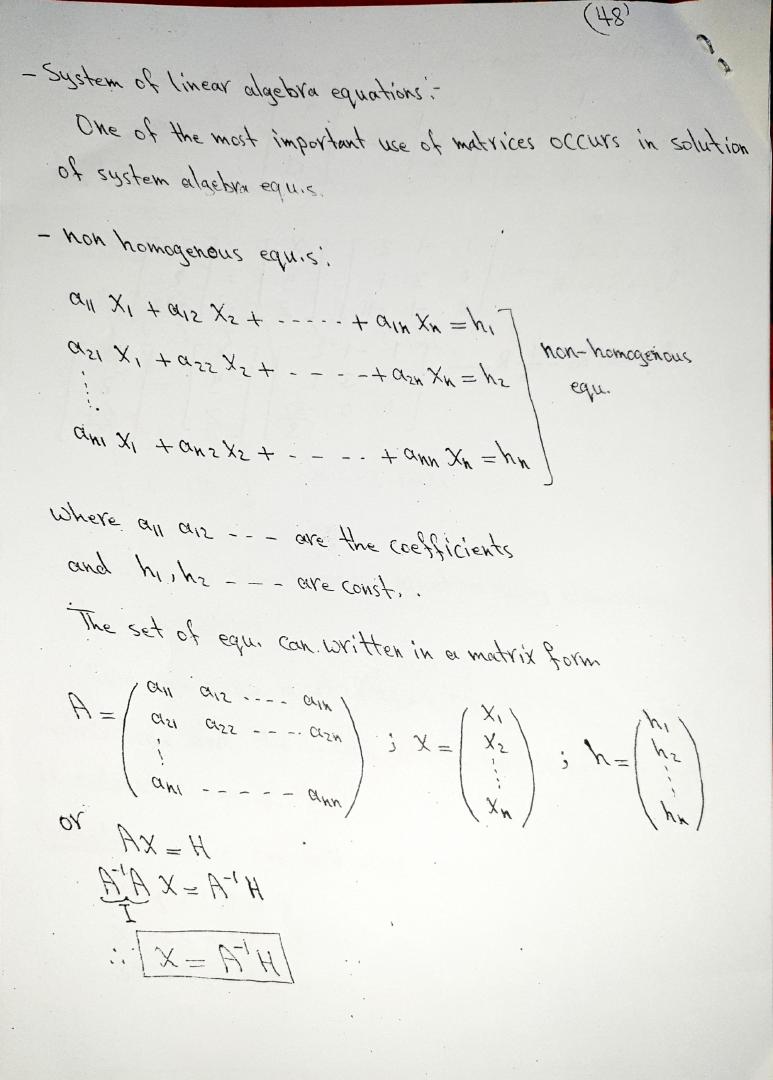 (48)
- System of linear algebra equations :-
One of the most important use of matrices occurs in solution
of system algebra equ.s.
- non homogenous equ.s :
a11 X1 + a12 X2 + ------ + a1n Xn = h1
a21 X1 + a22 X2 + - - - - + a2n Xn = h2
non-homogenous
equ.
an1 X1 + an2 X2 + - - - - + ann Xn = hn
where a11 a12 - - - are the coefficients
and h1, h2 - - - are const. .
The set of equ. can written in a matrix form
A = ( a11 a12 ---- a1n ; X = ( X1 ; h = ( h1
a21 a22 ---- a2n X2 h2
an1 - - - - - ann ) Xn ) hn )
or
AX = H
A⁻¹A X = A⁻¹ H
I
∴ X = A⁻¹H